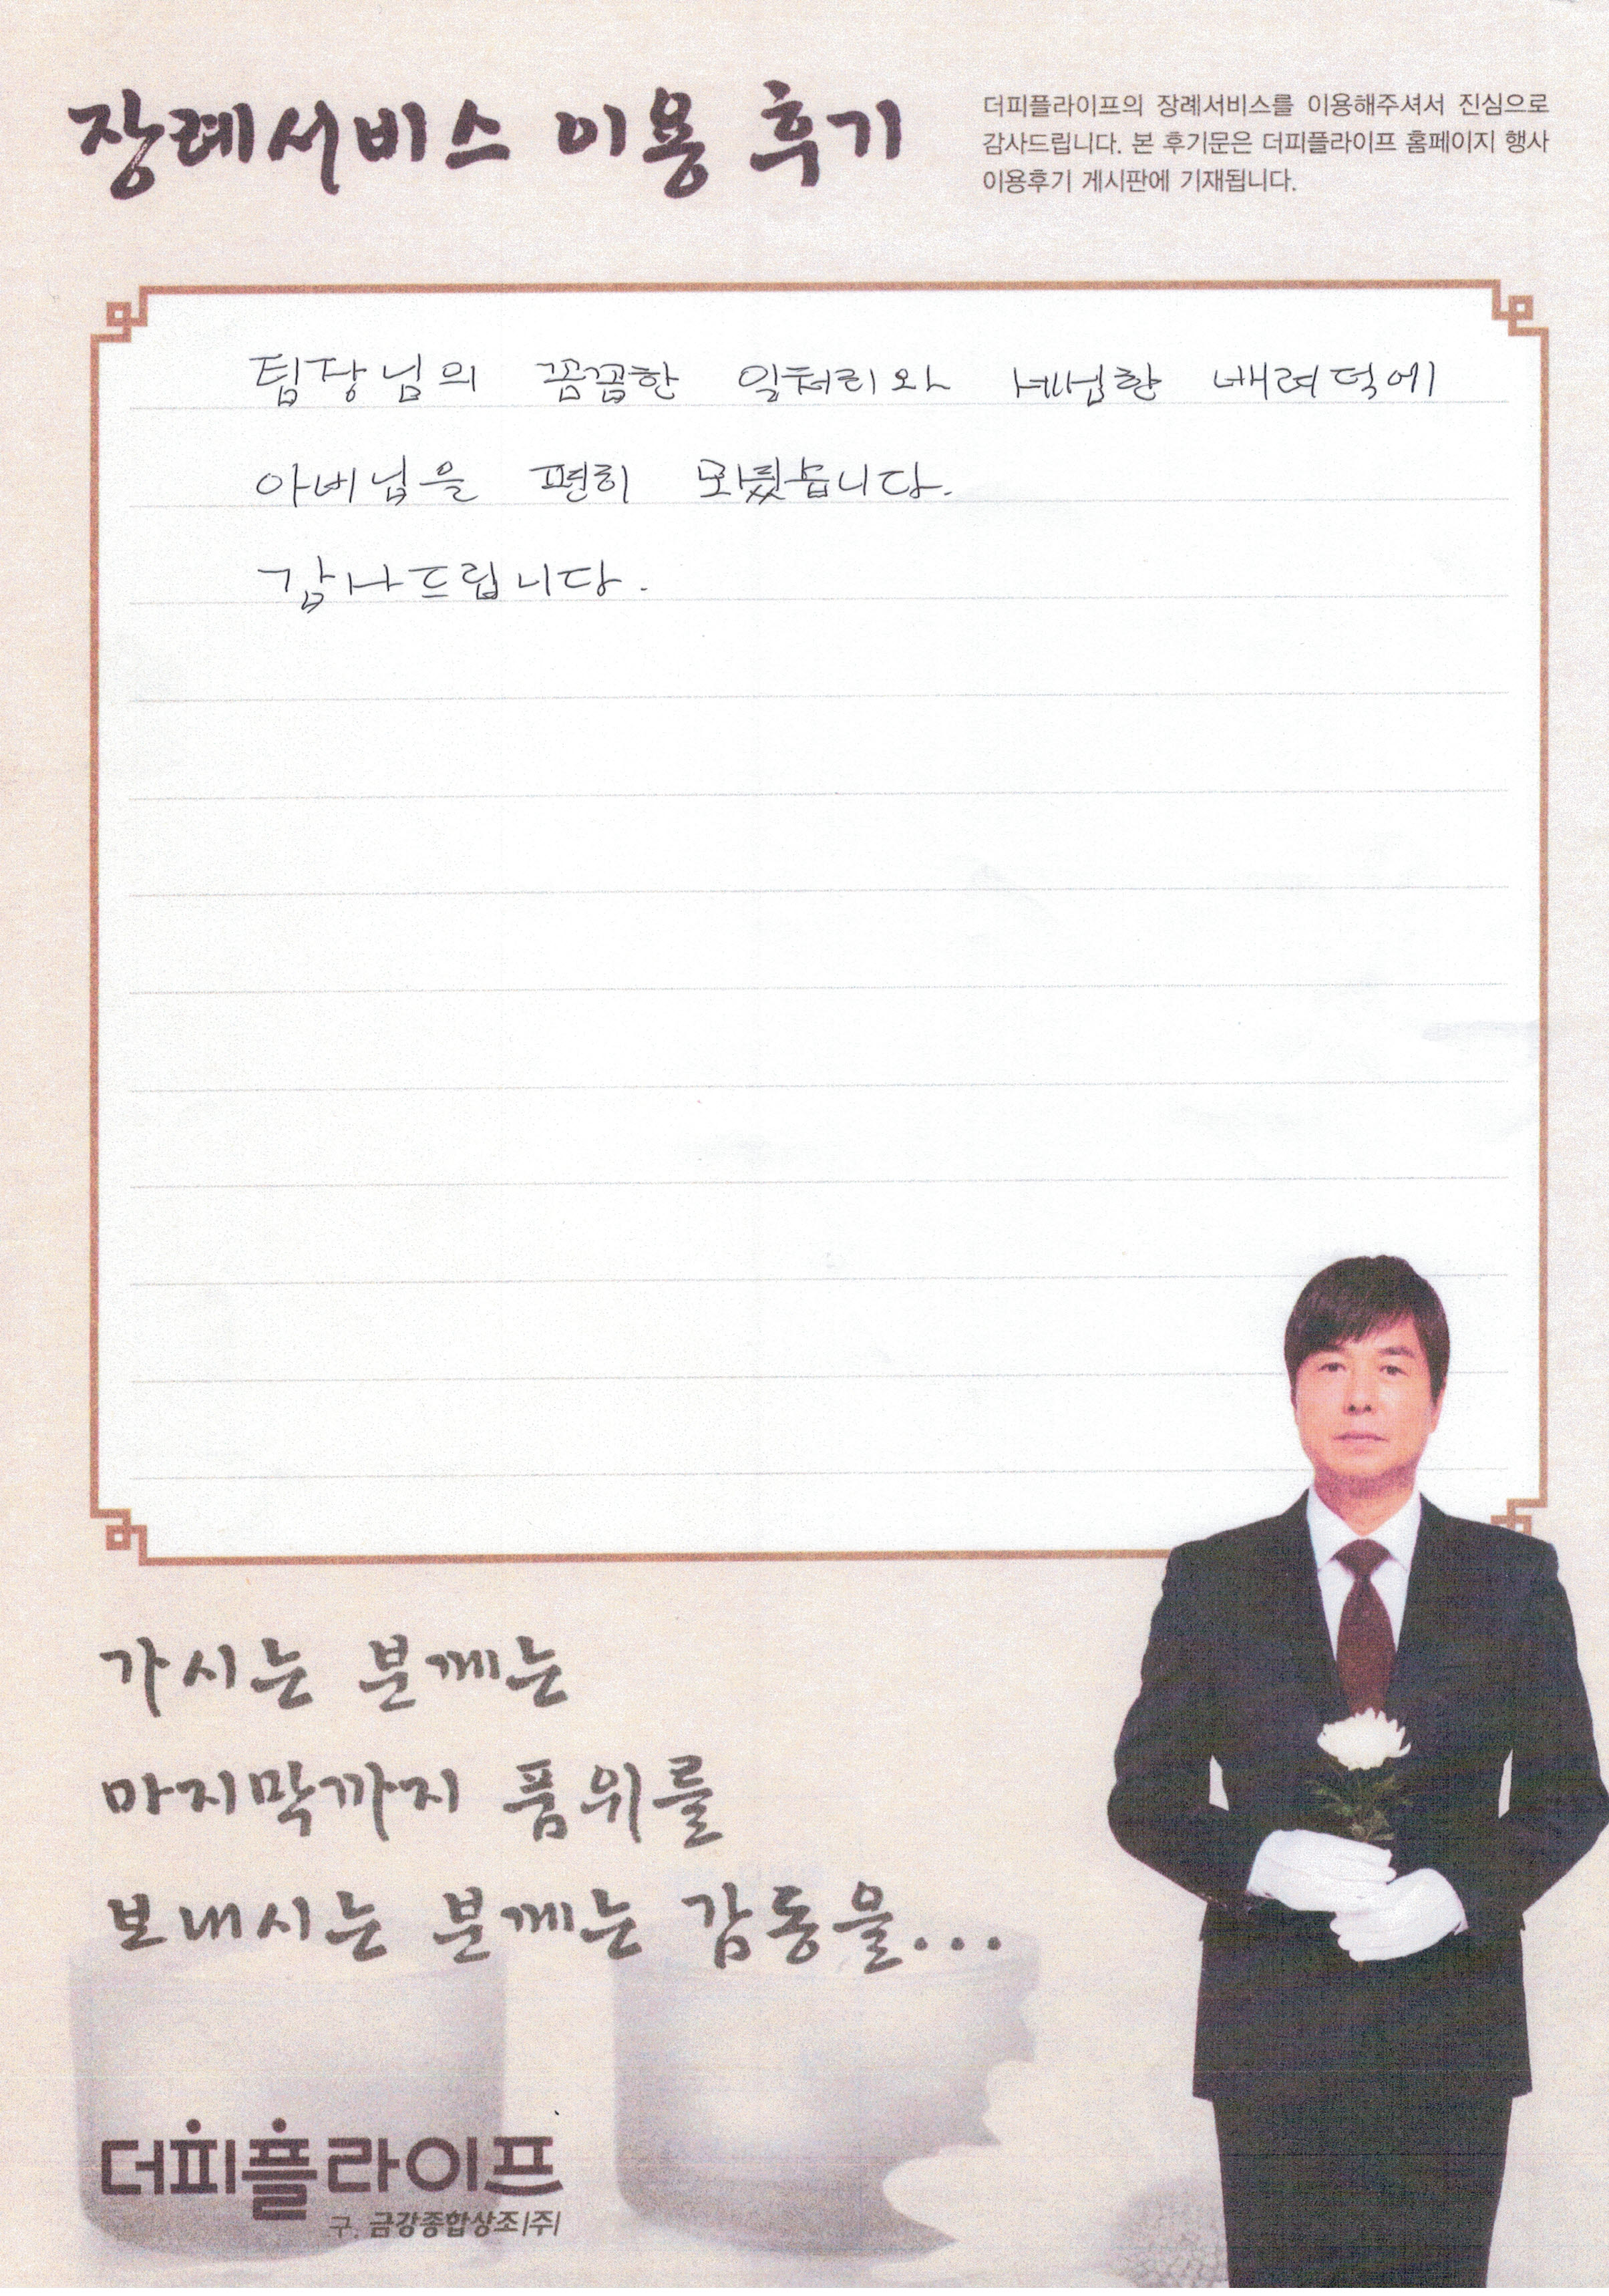 장례서비스 이용 후기
더피플라이프의 장례서비스를 이용해주셔서 진심으로
감사드립니다. 본 후기문은 더피플라이프 홈페이지 행사
이용후기 게시판에 기재됩니다.
팀장님의 꼼꼼한 일처리와 세심한 배려덕에
아버님을 편히 모셨습니다.
감사드립니다.
가시는 분께는
마지막까지 품위를
보내시는 분께는 감동을...
더피플라이프
구. 금강종합상조(주)